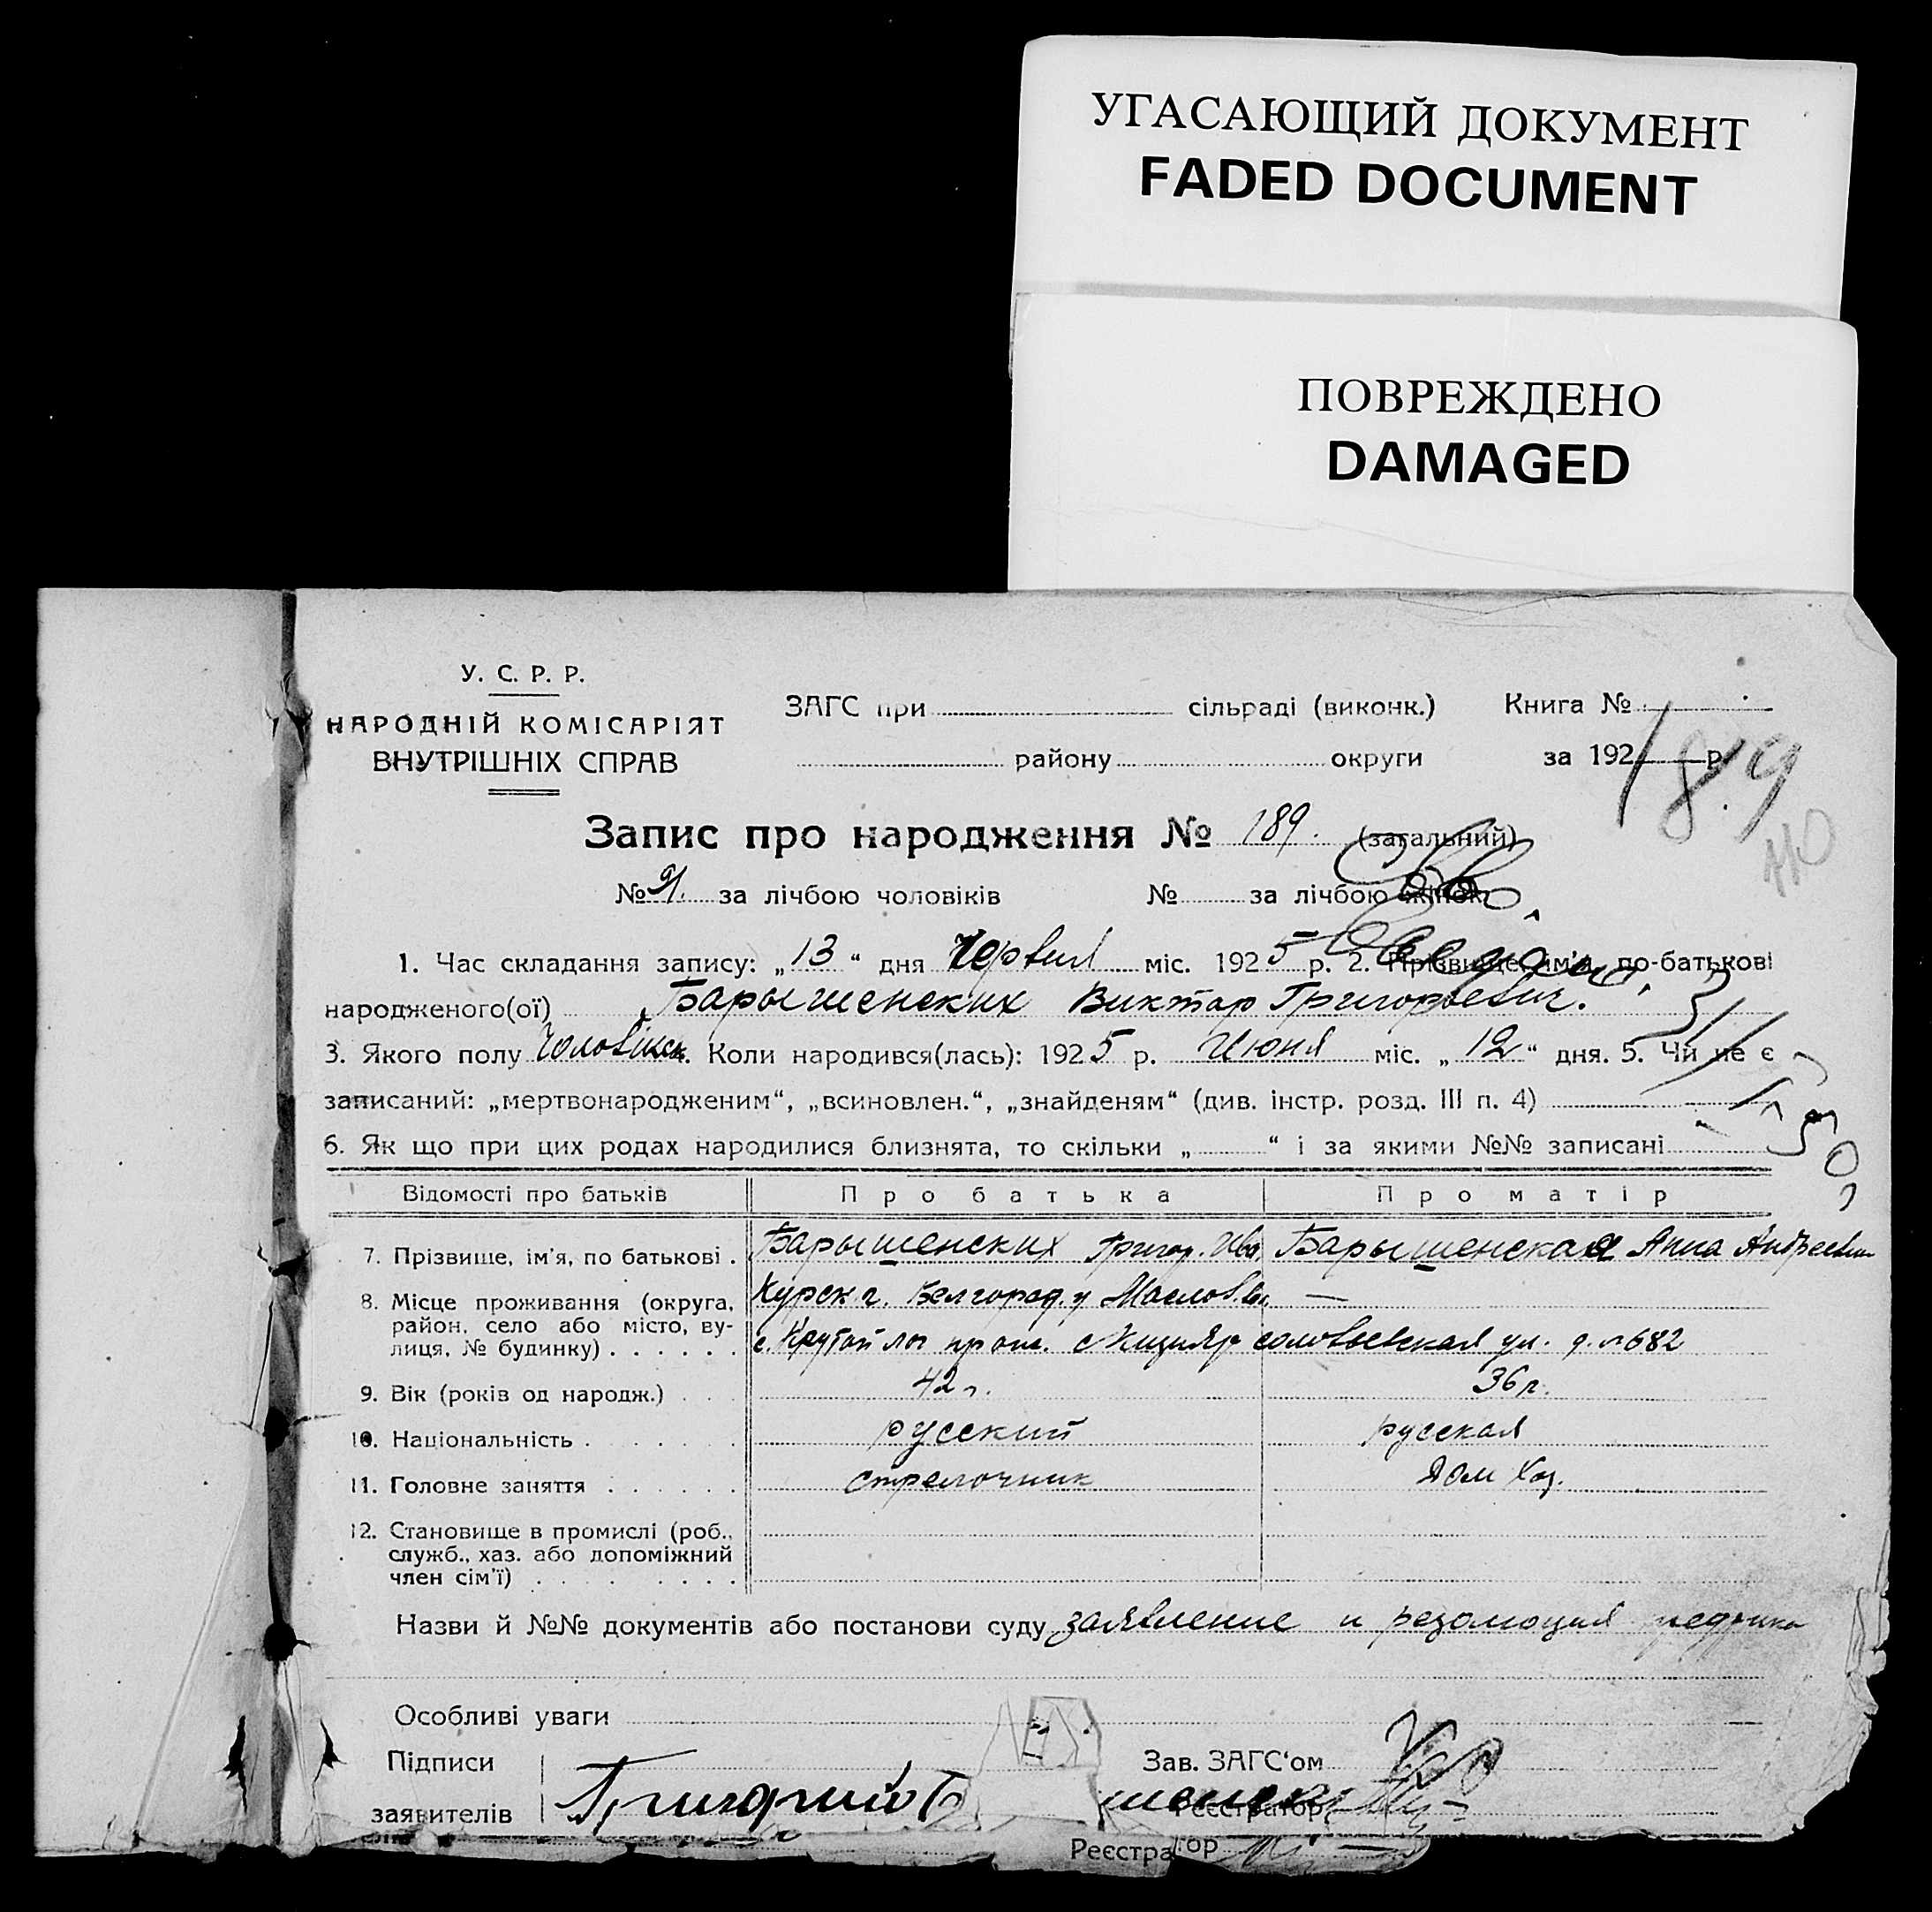 УГАСАЮЩИЙ ДОКУМЕНТ
FADED DOCUMENT
ПОВРЕЖДЕНО
DAMAGED
У. С. Р. Р.
НАРОДНІЙ КОМІСАРІЯТ
ВНУТРІШНІХ СПРАВ
ЗАГС при сільраді (виконк.) Книга №
району округи за 192 р.
189
Запис про народження № 189. (загальний)
№ 91. за лічбою чоловіків № за лічбою жінок
1. Час складання запису: „13“ дня Червня міс. 1925 р. 2. Прізвище, им'я, по-батькові
народженого(ої) Барышенских Виктор Григорьевич.
3. Якого полу Чоловіцк. Коли народився(лась): 1925 р. Июня міс. „12“ дня. 5. Чи не є
записаний: „мертвонародженим“, „всиновлен.“, „знайденям“ (див. інстр. розд. III п. 4)
6. Як що при цих родах народилися близнята, то скільки „ “ і за якими №№ записані
Відомості про батьків Про батька Про матір
7. Прізвище, ім'я, по батькові . Барышенских Григор. Ива. Барышенская Анна Андреевн
8. Місце проживання (округа, Курск г. Белгород. у Маслов. —
район, село або місто, ву- с. Крутой лог прож. соловьевская ул. д. № 682
лиця, № будинку) . . . . . .
9. Вік (років од народж.) . . . 42 г. 36 г.
10. Національність . . . . . . . русский русская
11. Головне заняття . . . . . . стрелочник Дом Хоз.
12. Становище в промислі (роб.,
служб., хаз. або допоміжний
член сім'ї) . . . . . . . .
Назви й №№ документів або постанови суду заявление и резолюция
Особливі уваги
Підписи Зав. ЗАГС'ом
заявителів Григорий Б шенск Реєстратор
Реєстратор